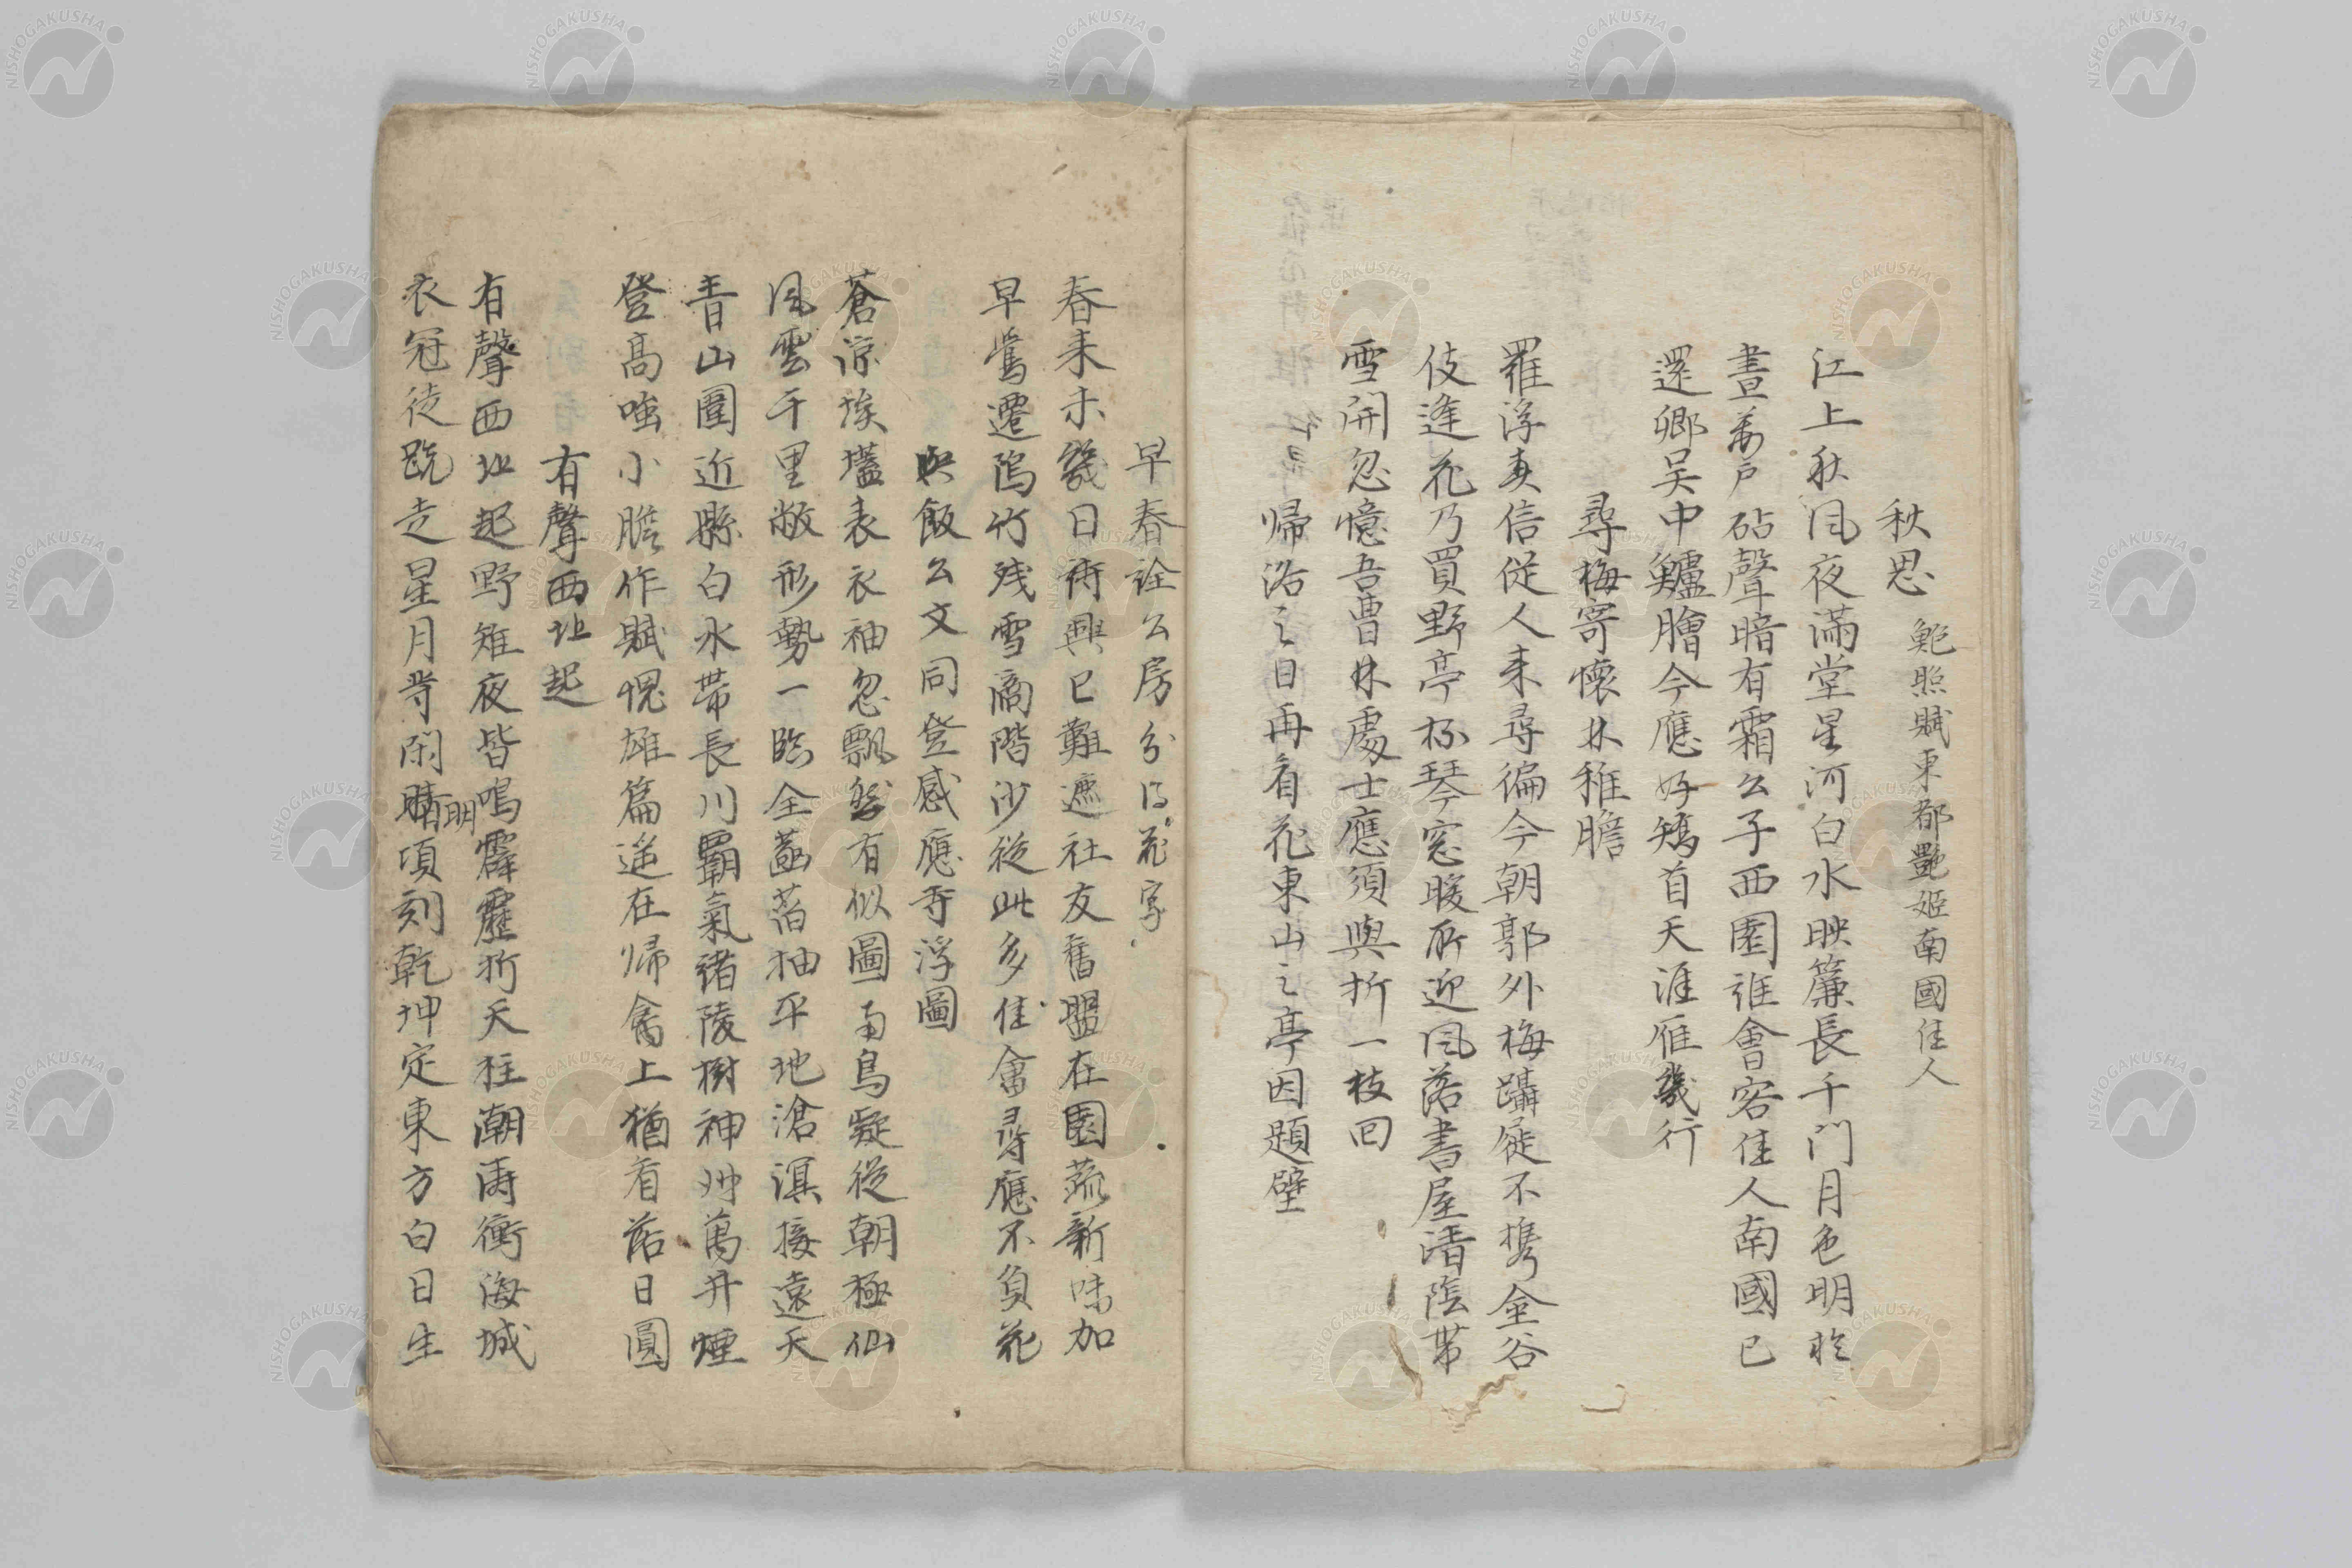 秋思
鮑照賦東都艶姬南國佳人
江上秋風夜滿堂星河白水映簾長千門月色明於
晝萬戶砧聲暗有霜公子西園誰會客佳人南國已
還鄉吴中鱸膾今應好矯首天涯雁幾行
尋梅寄懷林稚膽
羅浮真信從人来尋徧今朝郭外梅躡屐不携金谷
伎逢花乃買野亭杯琴窓暖所迎風落書屋清陰帶
雪開忽憶吾曹林處士應須與折一枝回
帰浴之日再看花東山之亭因題壁
早春詮公房分得花字
春来未幾日衙興已難遮社友舊盟在園蔬新味加
早鶯遷隖竹残雪滴階沙從此多佳會尋應不負花
與飯公文同登感應寺浮圖
蒼涼埃壒表衣袖忽飄然有似圖南鳥疑從朝極仙
風雲千里敞形勢一臨全菡萏抽平地滄溟接遠天
青山圍近縣白水帶長川覇氣諸陵樹神州萬井煙
登高嗤小膽作賦愧雄篇遥在帰禽上猶看落日圓
有聲西北起
有聲西北起野雉夜皆鳴霹靂折天柱潮濤衝海城
衣冠徒跣走星月等閑晴明頃刻乾坤定東方白日生
NISHOGAKUSHA